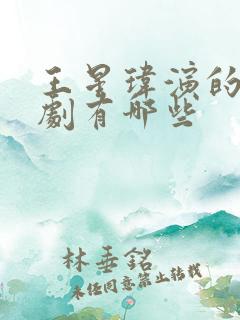 王星瑋演的
劇有哪些
林垂銘
未經同意禁止轉載